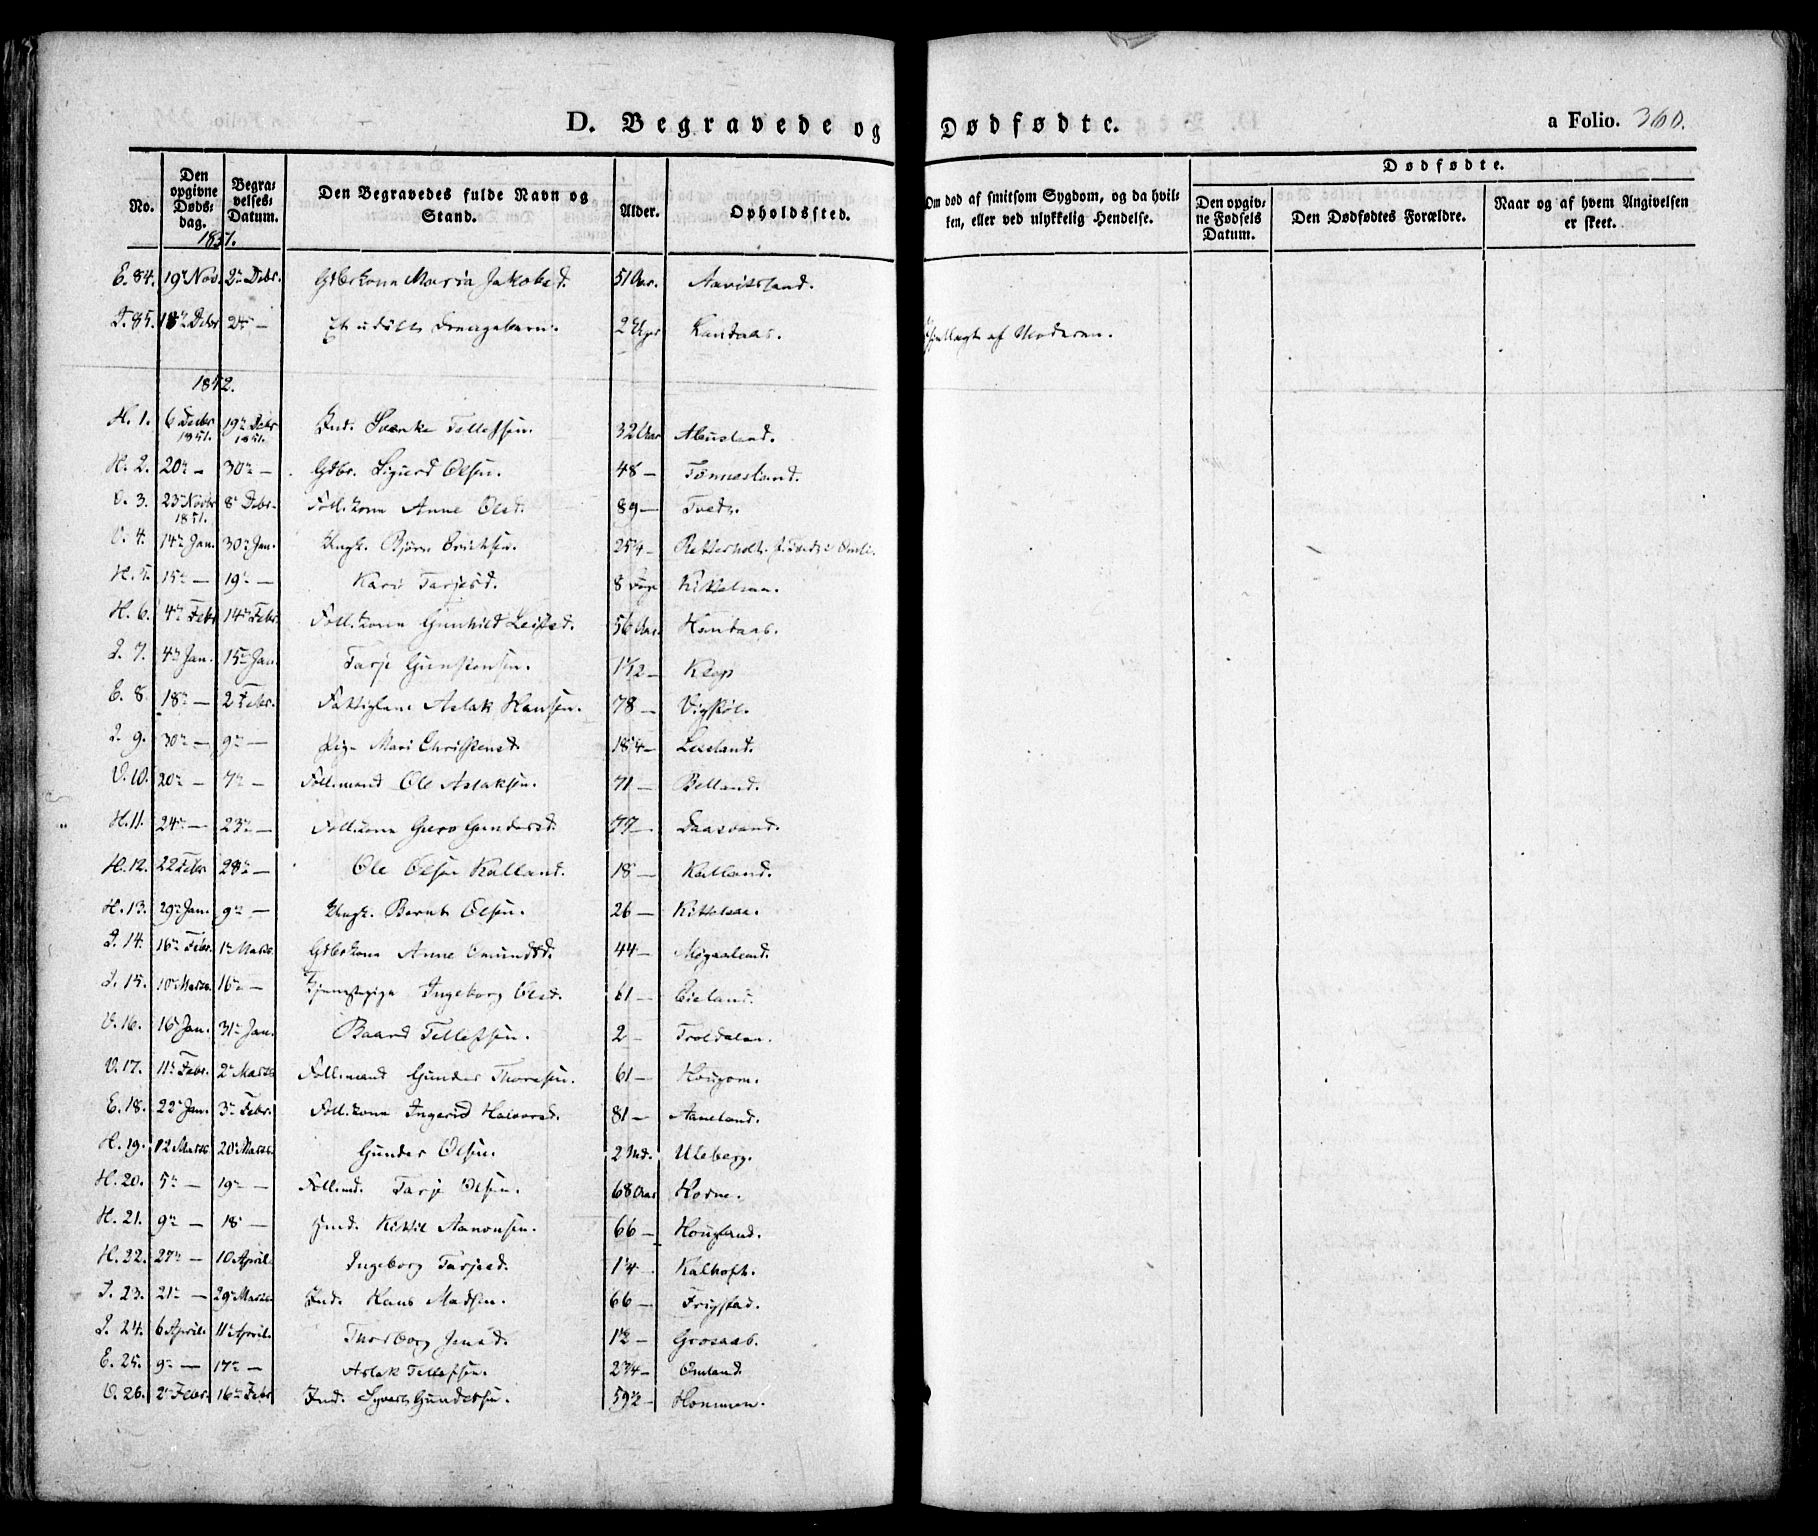 D. Begravede og Dødfødte. a Folio. 360.
No. Den opgivne Dødsdag. Begravelses-Datum. Den Begravedes fulde Navn og Stand. Alder. Opholdssted. Om død af smitsom Sygdom, og da hvilken, eller ved ulykkelig Hendelse. Dødfødte.
Den opgivne Fødsels Datum. Den Dødfødtes Forældre. Naar og af hvem Angivelsen er skeet.
1851.
E. 84. 19 Nov. 2 Debr. Gdbrkona Maria Jakobsd. 51 Aar. Aavitsland.
I. 85. Debr 24 — Et udöbt Drengebarn. 2 Uger ihjellagt af Moderen.
1852.
H. 1. 6 Debr 1851. 19 Debr 1851. Ind. Tellefsen. 32 Aar Abusland.
H. 2. 20 — 30 — Gdbr. Sigurd Olsen. 48 — Tønnesland.
V. 3. 23 Novbr 1851. 8 Debr. Föll.kona Anne Olsd. 89 — Tvedt.
V. 4. 14 Jan. 30 Jan. Ungk. Bjørn Erichsen. 25 1/4 — Retterholt.
H. 5. 15 — 19 — Kari Tarjesd. 8 Uger Kittelsaa.
H. 6. 4 Febr 14 Febr. Föll.kona Gunhild Leifsd. 56 Aar.
I. 7. 4 Jan. 15 Jan. Tarje Gunstensen. 1 1/2 — Klep
E. 8. 18 — 2 Febr. Fattiglem Aslak Hansen. 78 — Vigstöl.
I. 9. 30 — 9 — Pige Mari Christensd. 18 1/4 — Lieland.
V. 10. 20 — 7 — Föll.mand Ole Aslaksen. 71 — Belland.
H. 11. 24 — 23 — Föll.kona Guro Gundersd. 77 — Daasvand.
H. 12. 22 Febr 28 — Ole Olsen Kalland. 18 — Kalland.
H. 13. 29 Jan. 9 — Ungk. Bernt Olsen. 26 — Kittelsaa.
I. 14. 16 Febr. 1 Marts. Gdbrkona Anne Omundsd. 44 — Møgaaland.
I. 15. 10 Marts. 16 — Ingeborg Olsd. 61 — Eieland.
V. 16. 16 Jan. 31 Jan. Baard Tellefsen. 2 — Troldalen.
V. 17. 11 Febr. 2 Marts Föll.mand Gunder Thoresen. 61 — Hougom.
E. 18. 22 Jan. 3 Febr. Föll.kona Ingerid Halvorsd. 81 — Aaneland.
H. 19. 12 Marts. 20 Marts. Gunder Olsen. 2 Md. Uleberg.
H. 20. 5 — 19 — Föll.md. Tarje Olsen. 68 Aar Horne.
H. 21. 9 — 18 — Ind. Kittil Aanonsen. 66 — Hougland.
H. 22. 27 — 10 April. Ingeborg Tarjesd. 1 1/4 — Kalhoft.
I. 23. 21 — 29 Marts. Ind. Hans Madsen. 66 — Frigstad.
I. 24. 6 April. 11 April. Thorborg Jensd. 1 1/2 — Grosaas.
E. 25. 9 — 17 — Aslak Tellefsen. 2 3/4 — Omland.
V. 26. 2 Febr. 16 Febr. Ind. Syvert Gundersen. 59 1/2 — Hommen.